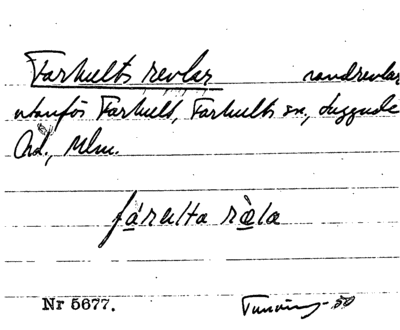 Farhults revlar sandrevlar
utanför Farhult, Farhults sn, Luggude
hd., Mlm.
fárulta ræ̀la
Nr 5677.
-50